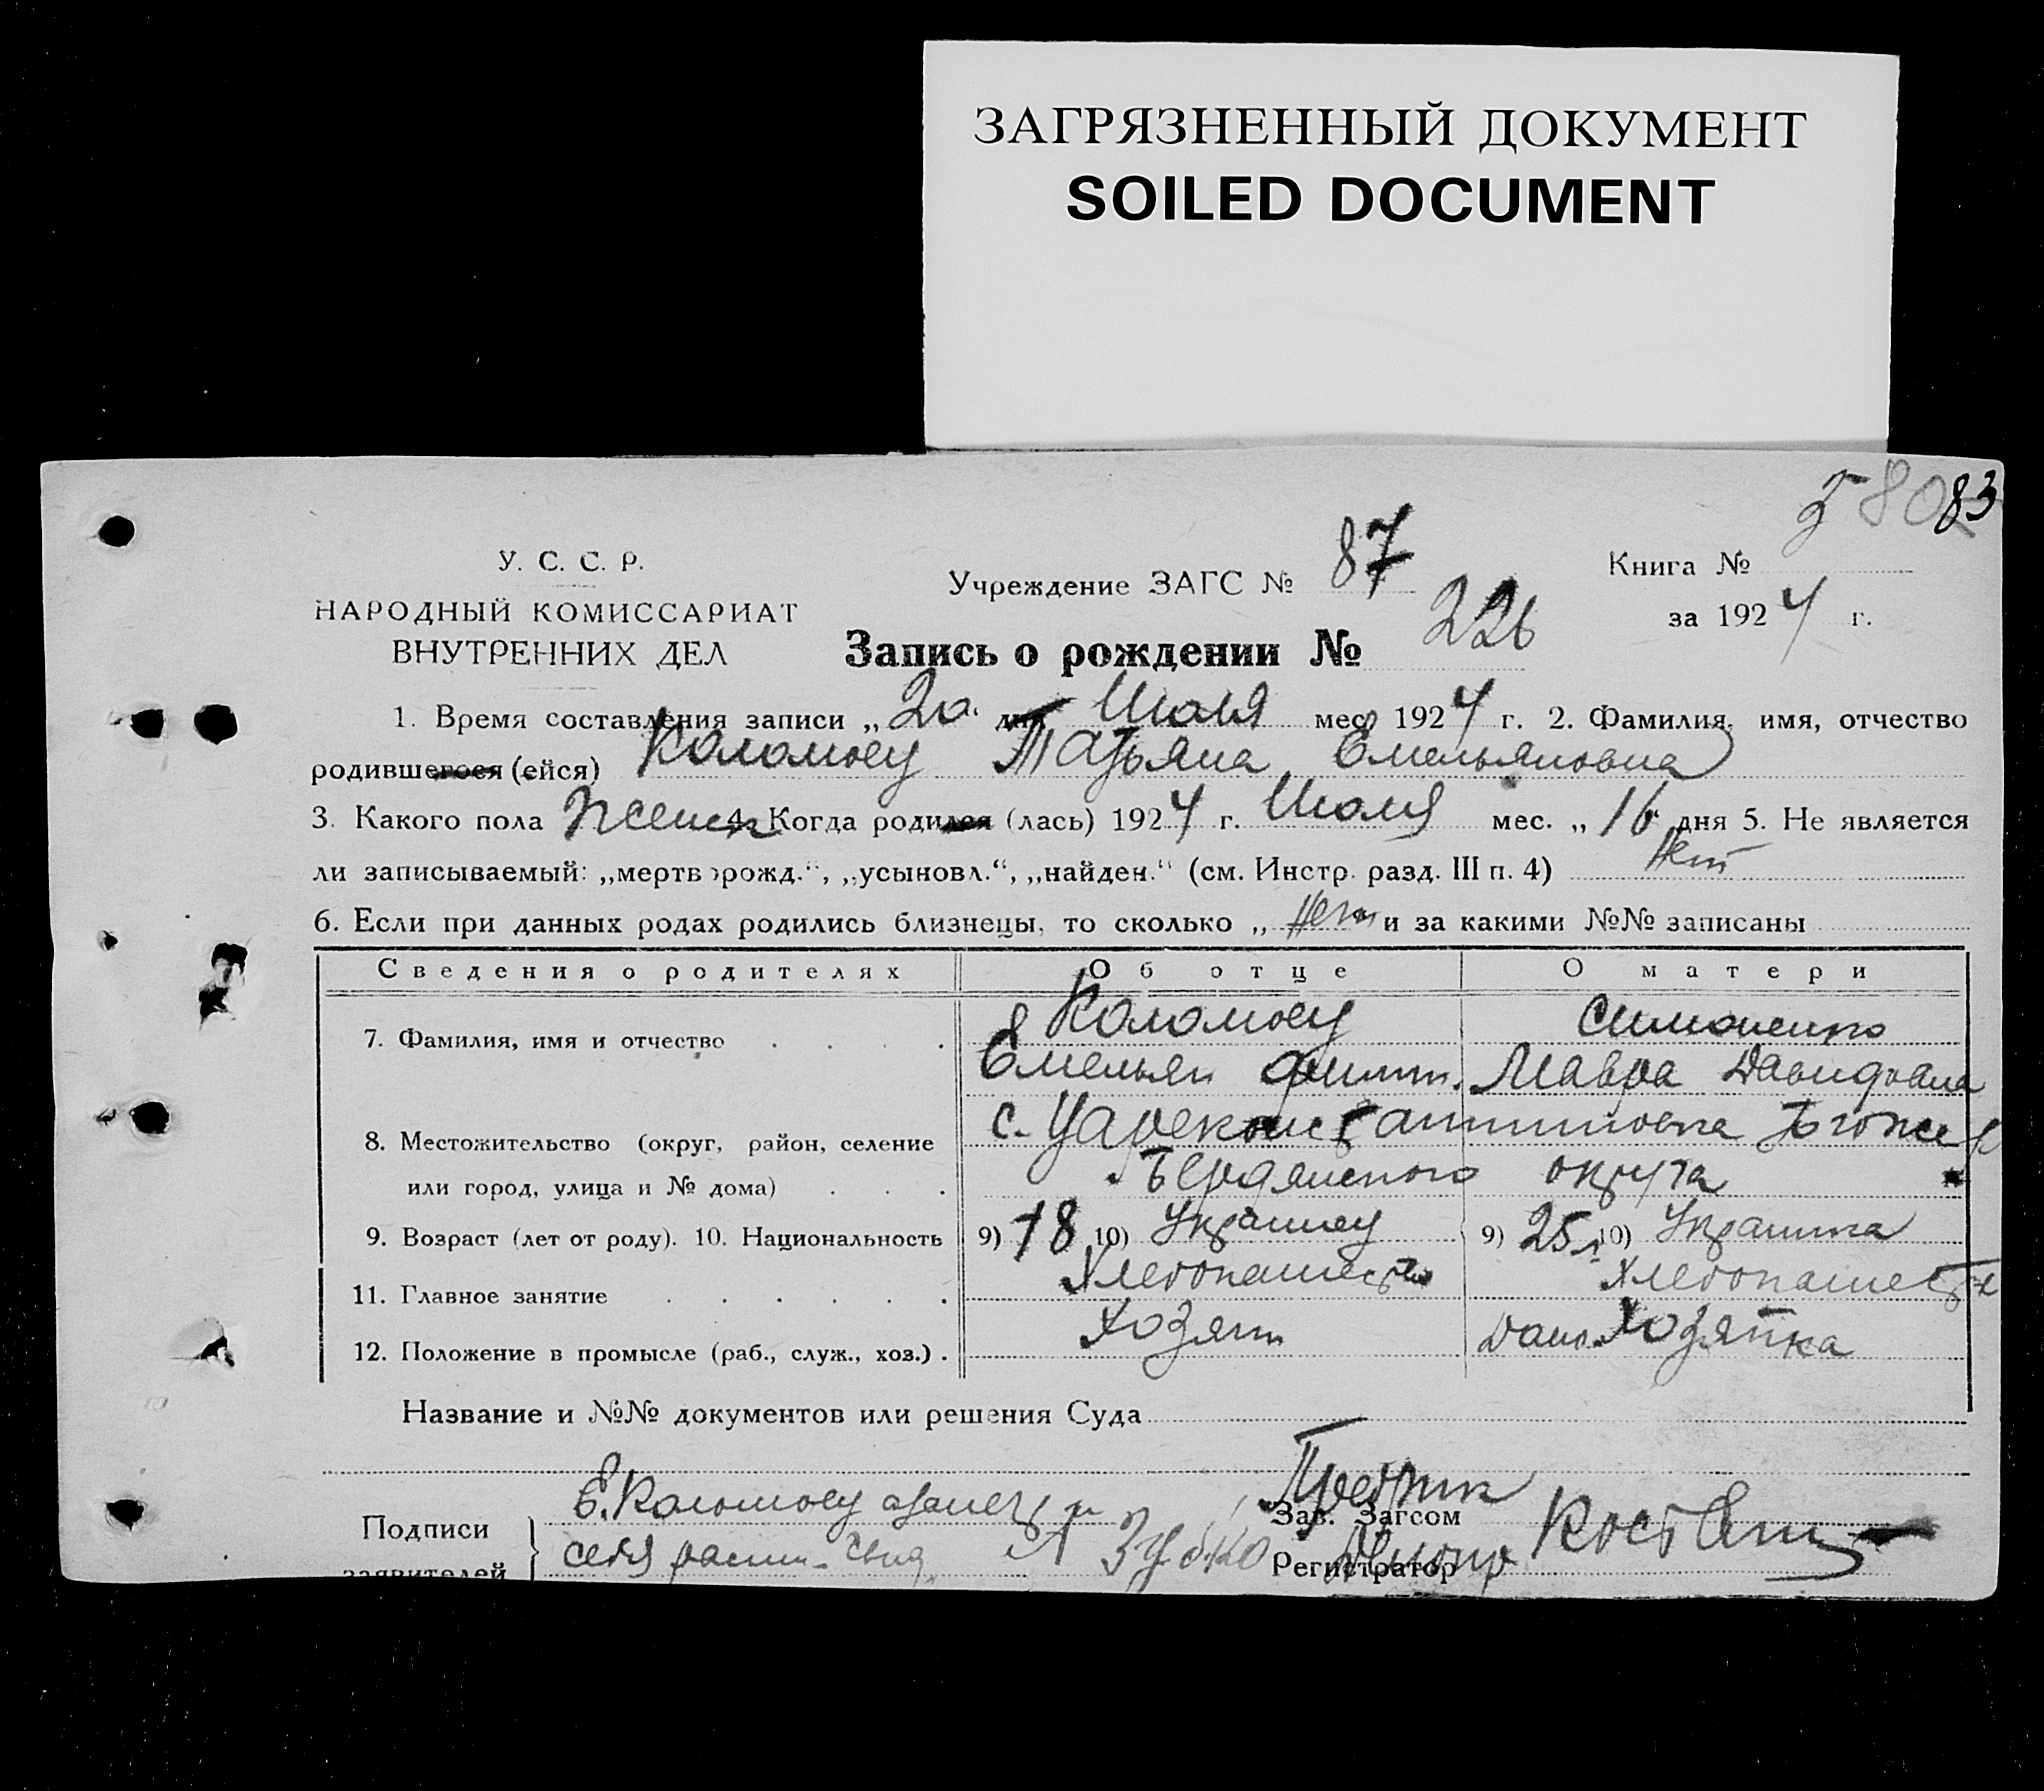 ЗАГРЯЗНЕННЫЙ ДОКУМЕНТ
SOILED DOCUMENT
80 83
У. С. С. Р.
НАРОДНЫЙ КОМИССАРИАТ
ВНУТРЕННИХ ДЕЛ
Учреждение ЗАГС № 87
Книга №
за 1924 г.
Запись о рождении № 226
1. Время составления записи „20" дня Июля мес. 1924 г. 2. Фамилия, имя, отчество
родившегося (ейся) Коломоец Татьяна Емельяновна
3. Какого пола женск 4. Когда родился (лась) 1924 г. Июля мес. „16" дня 5. Не является
ли записываемый: „мертворожд.“, „усыновл.“, „найден.“ (см. Инстр. разд. III п. 4) Нет
6. Если при данных родах родились близнецы, то сколько „Нет" и за какими №№ записаны
Сведения о родителях Об отце О матери
7. Фамилия, имя и отчество Коломоец Симоненко
Емельян Мавра Давидовна
8. Местожительство (округ, район, селение с. Цареконстантиновка
или город, улица и № дома) Бердянского округа
9. Возраст (лет от роду). 10. Национальность 9) 18 10) Украинец 9) 25 л 10) Украинка
11. Главное занятие Хлебопашество Хлебопашество
12. Положение в промысле (раб., служ., хоз.) Хозяин Хозяйка
Название и №№ документов или решения Суда
Подписи заявителей Е. Коломоец
себя А Зубко
Зав. Загсом
Регистратор